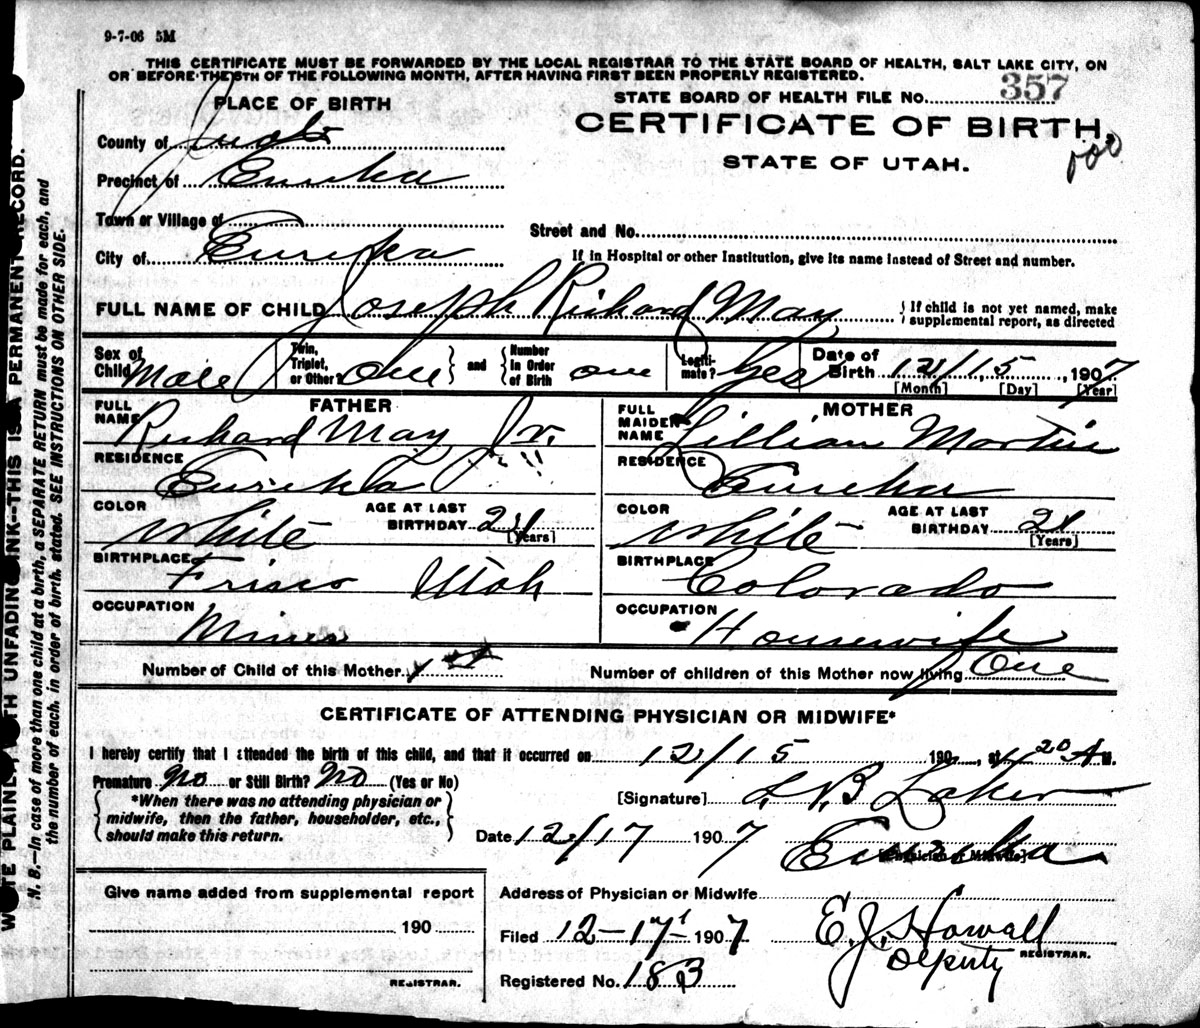 9-7-06 5M
THIS CERTIFICATE MUST BE FORWARDED BY THE LOCAL REGISTRAR TO THE STATE BOARD OF HEALTH, SALT LAKE CITY, ON
OR BEFORE THE 5TH OF THE FOLLOWING MONTH, AFTER HAVING FIRST BEEN PROPERLY REGISTERED.
PLACE OF BIRTH
STATE BOARD OF HEALTH FILE No. 357
CERTIFICATE OF BIRTH.
STATE OF UTAH.
County of Juab
Precinct of Eureka
Town or Village of
Street and No.
City of Eureka
If in Hospital or other Institution, give its name instead of Street and number.
FULL NAME OF CHILD Joseph Richard May
If child is not yet named, make
supplemental report, as directed
Sex of Child Male
Twin, Triplet, or Other? One and Number in Order of Birth one
Legiti-mate? Yes
Date of Birth 12/15, 1907
[Month] [Day] [Year]
FATHER
FULL NAME Richard May Jr.
RESIDENCE Eureka
COLOR White AGE AT LAST BIRTHDAY
[Years]
BIRTHPLACE Frisco Utah
OCCUPATION Miner
MOTHER
FULL MAIDEN NAME Lillian Martin
RESIDENCE Eureka
COLOR White AGE AT LAST BIRTHDAY 21
[Years]
BIRTHPLACE Colorado
OCCUPATION Housewife
Number of Child of this Mother 1st
Number of children of this Mother now living One
CERTIFICATE OF ATTENDING PHYSICIAN OR MIDWIFE*
I hereby certify that I attended the birth of this child, and that it occurred on 12/15 190 , at 20 A M.
Premature No or Still Birth? No (Yes or No)
*When there was no attending physician or
midwife, then the father, householder, etc.,
should make this return.
[Signature] Laker
Date 12/17 1907 Eureka
[Physician or Midwife]
Give name added from supplemental report
190
REGISTRAR.
Address of Physician or Midwife
Filed 12-17- 1907 E. J. Howall
Deputy REGISTRAR.
Registered No. 183
WRITE PLAINLY WITH UNFADING INK--THIS IS A PERMANENT RECORD.
N. B.—In case of more than one child at a birth, a SEPARATE RETURN must be made for each, and
the number of each, in order of birth, stated. SEE INSTRUCTIONS ON OTHER SIDE.